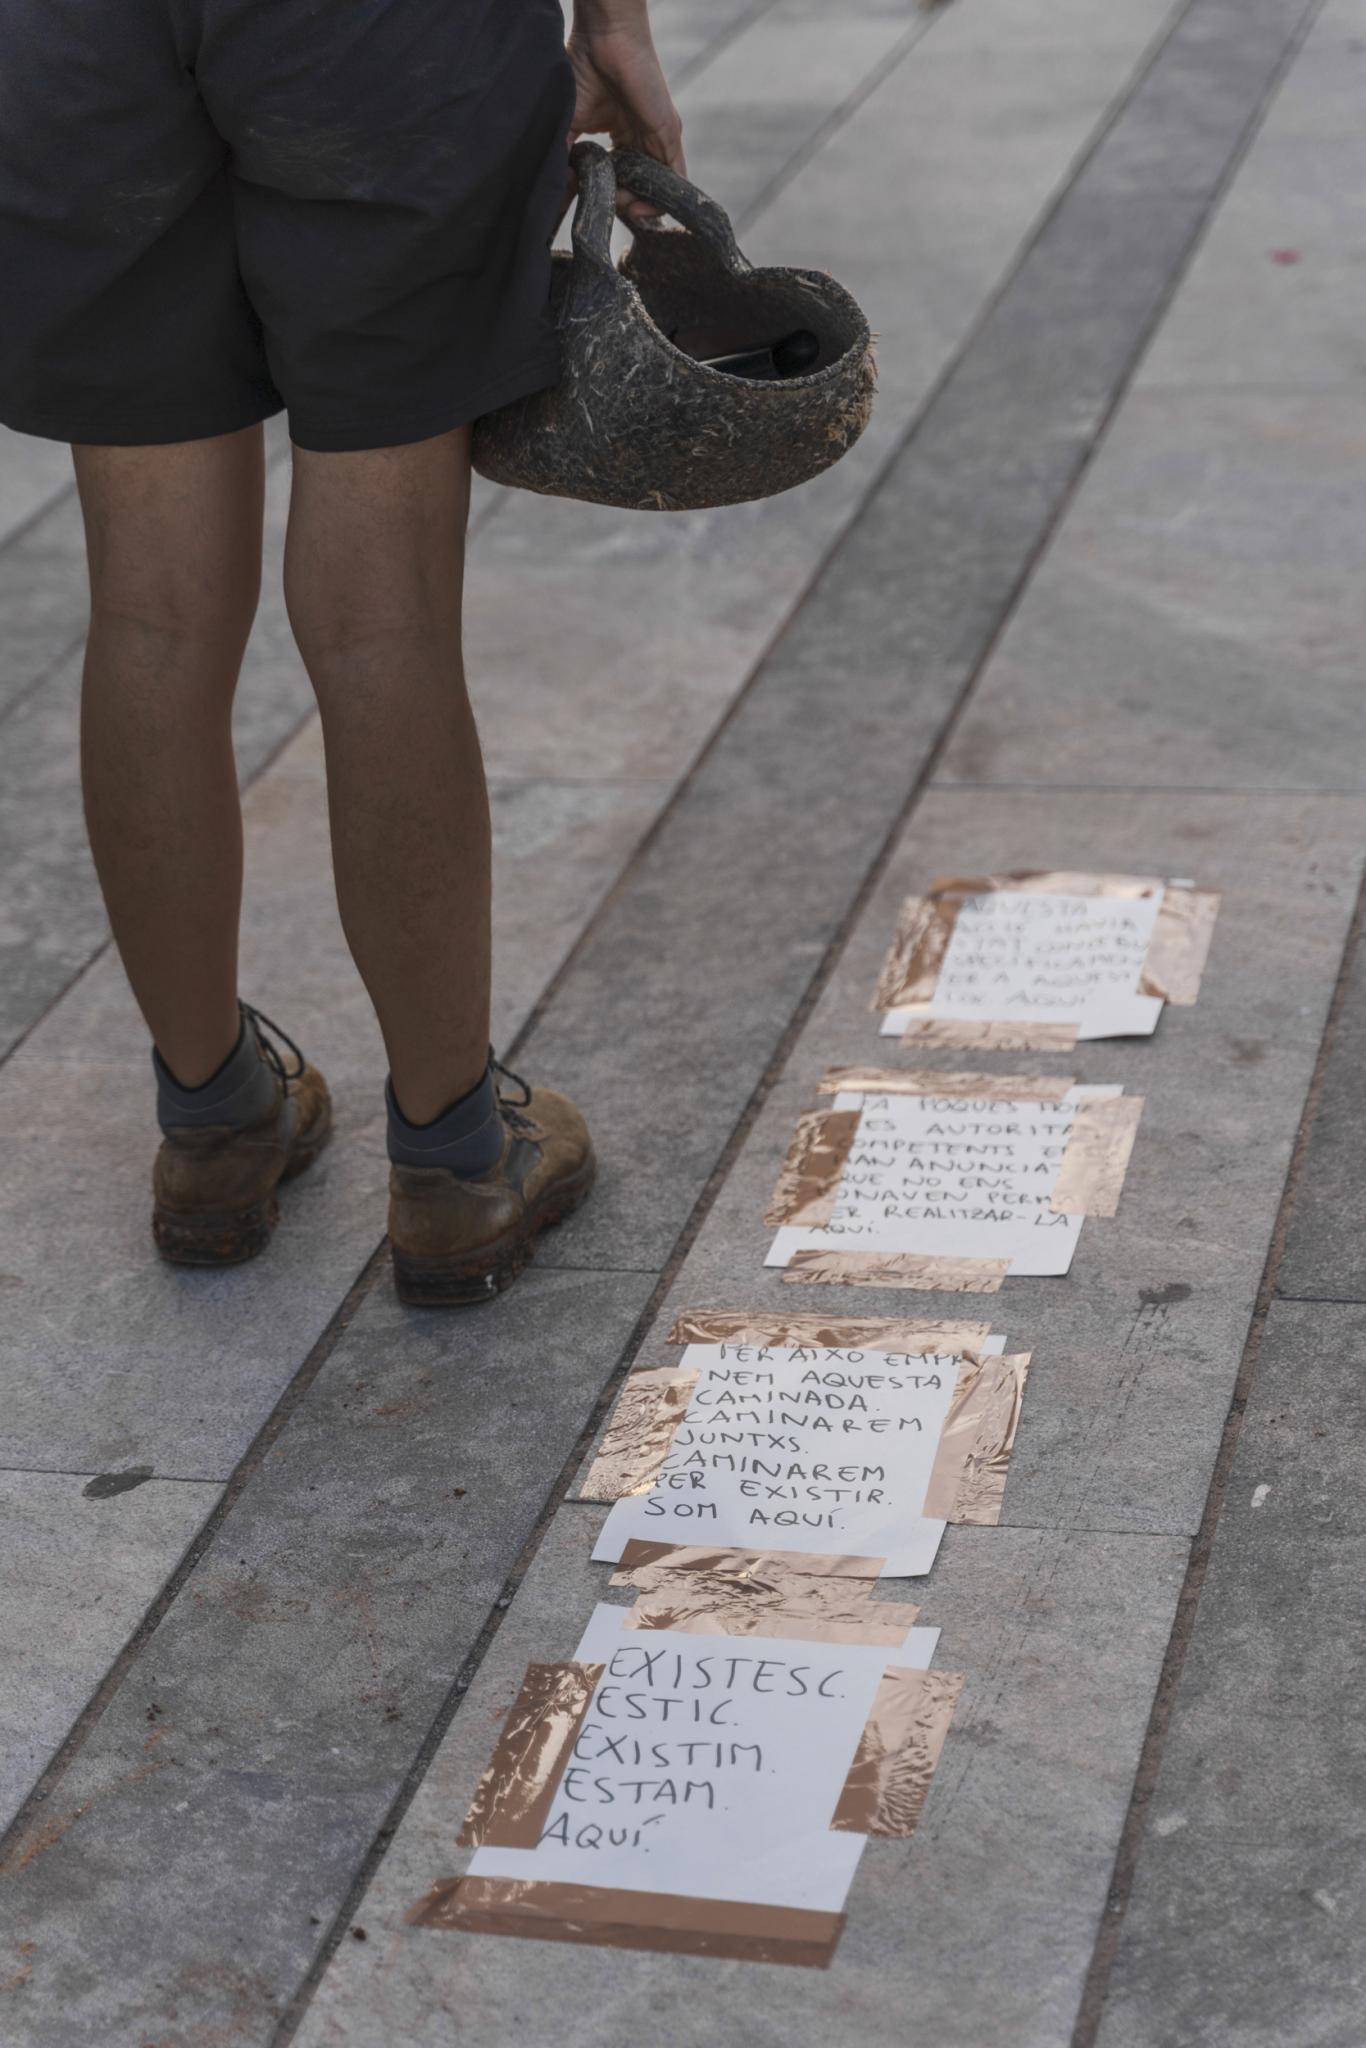 AQUESTA
HAVIA
ESPECIFICAMEN
ER A AQUEST
LOC. AQUÍ
FA POQUES HOR
LES AUTORITA
COMPETENTS EN
HAN ANUNCIAT
QUE NO ENS
DONAVEN PERM
PER REALITZAR-LA
AQUÍ.
PER AIXO EMPR
NEM AQUESTA
CAMINADA.
CAMINAREM
JUNTXS.
CAMINAREM
PER EXISTIR.
SOM AQUÍ.
EXISTESC.
ESTIC.
EXISTIM.
ESTAM.
AQUÍ.